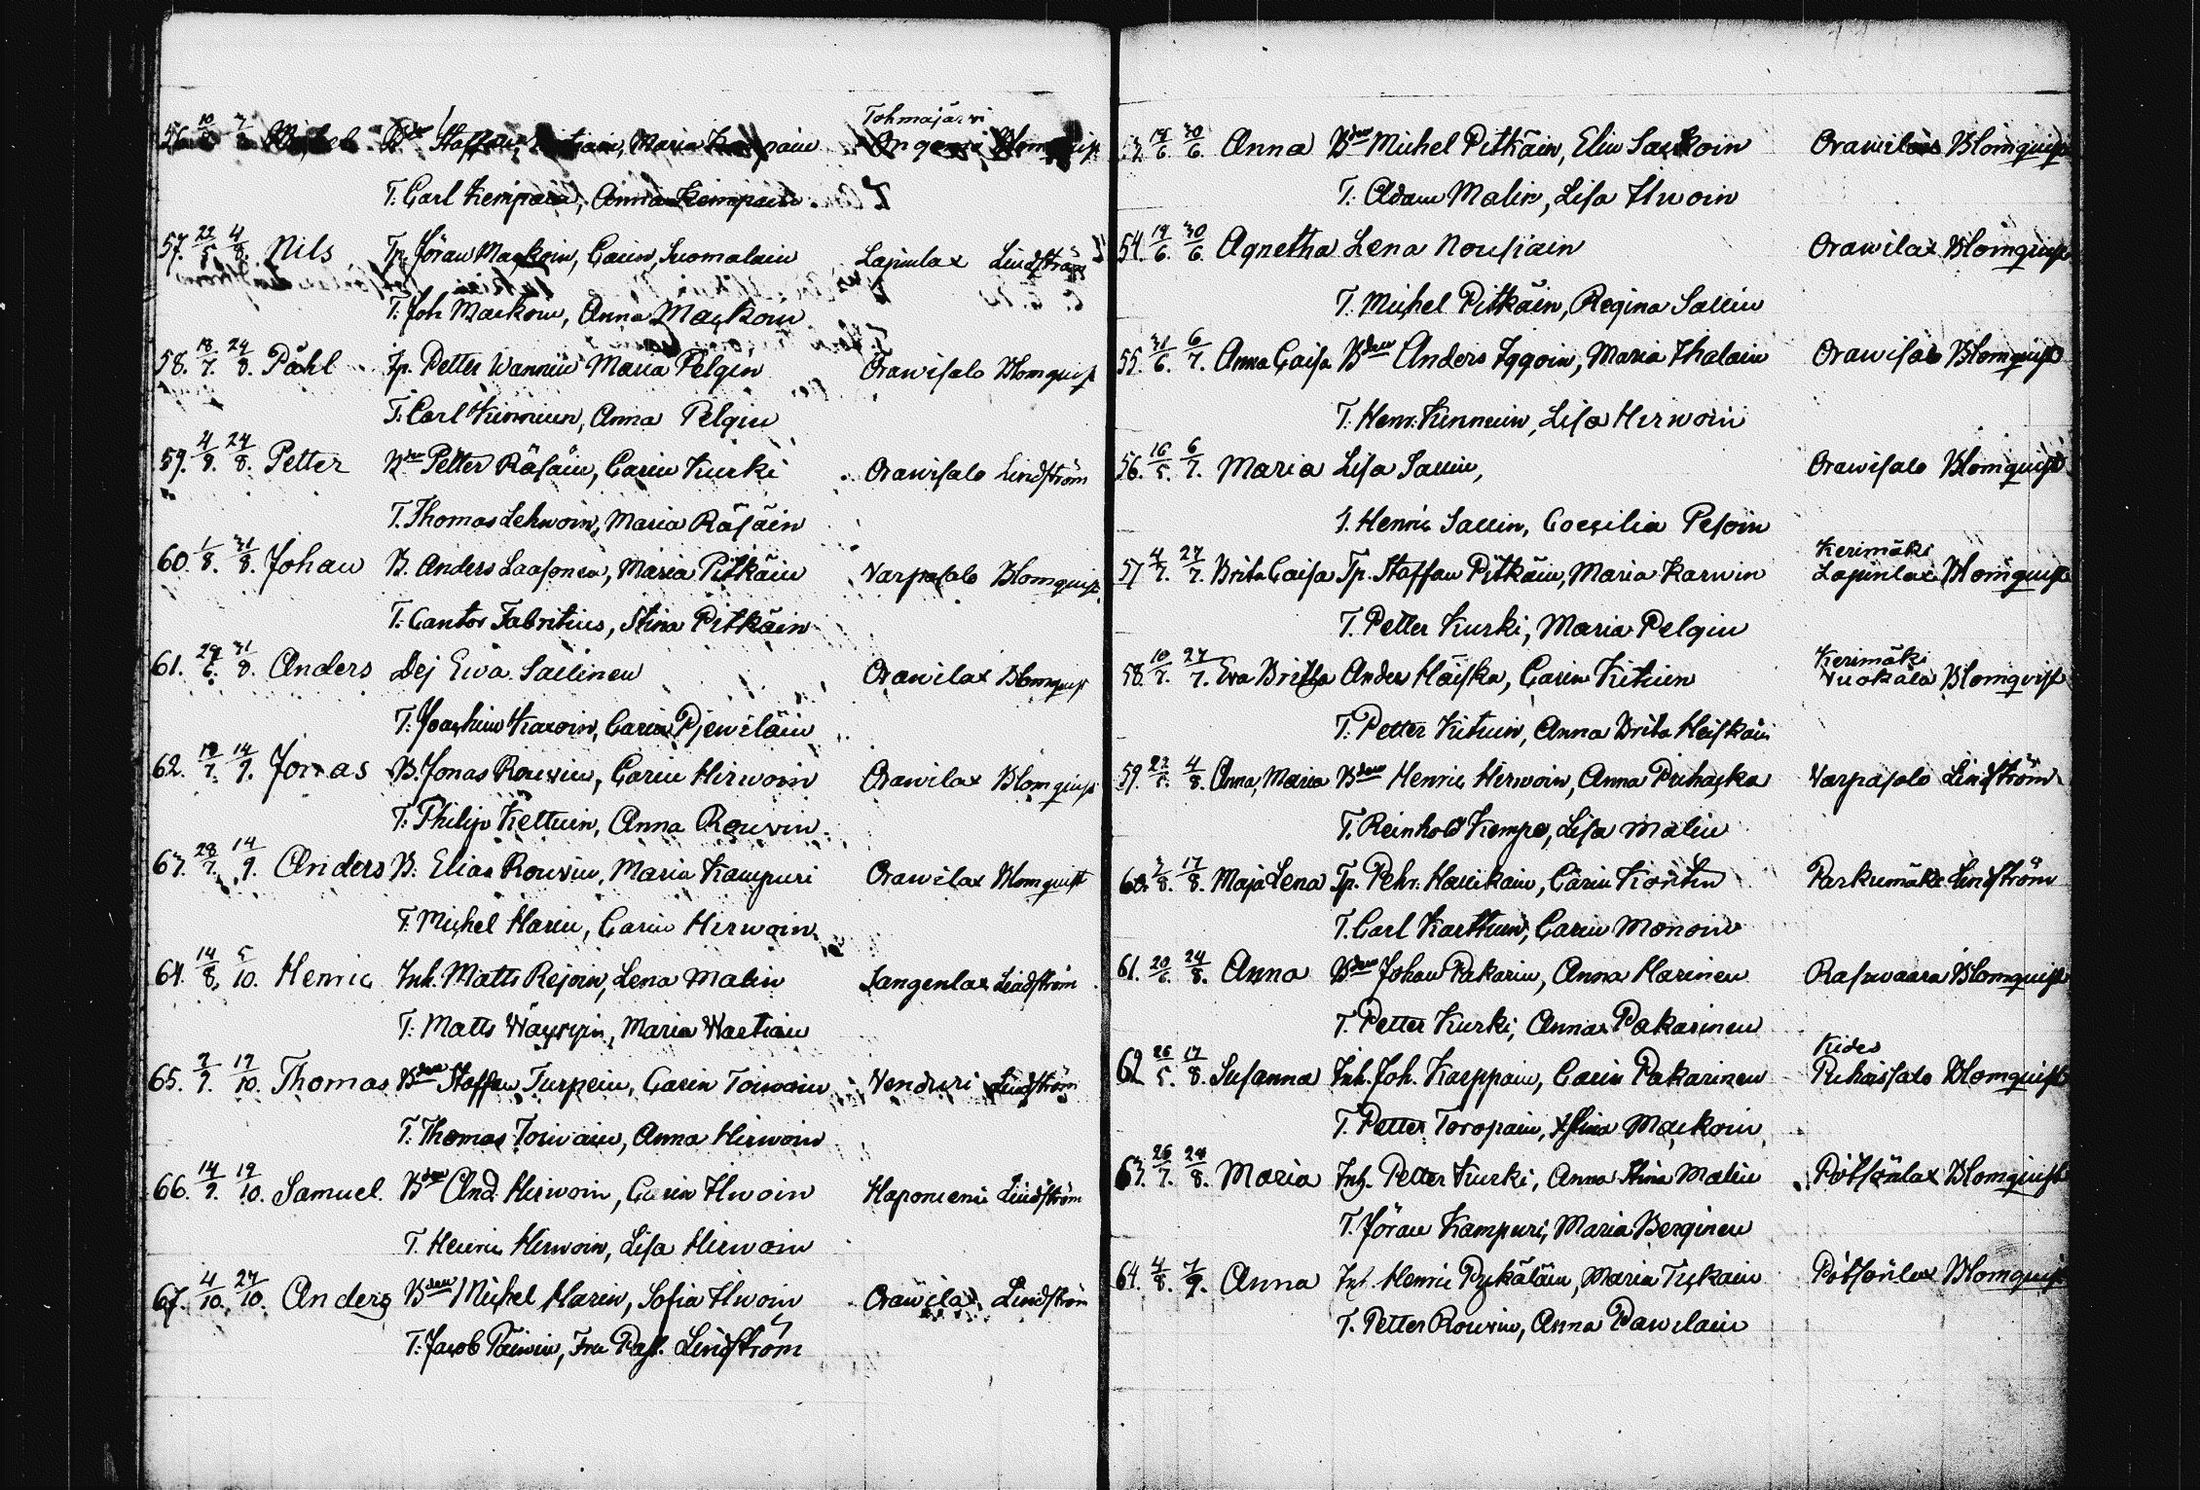 Tohmajärvi
56. 10/8 7/8 Michel Bdn Staffan, Maria Onganus Blomquist
T. Carl Kempain, Anna Kempain
57. 22/5 4/8. Nils Tp. Jöran Mackoin, Carin Suomalain Lapinlax Lindström
T. Joh Mackoin, Anna Mackoin
58. 18/7. 24/8. Påhl Tp. Petter Wannin Maria Pelgin Orawisalo Blomquist
T. Carl Kinnuin, Anna Pelgin
59. 4/8. 24/8. Petter Bdn Petter Räsäin, Carin Kurki Orawisalo Lindström
T. Thomas Lehwoin, Maria Räsäin
60. 1/8. 31/8. Johan B. Anders Laasonen, Maria Pitkäin Varpasalo Blomquist
T. Cantor Fabritius, Stina Pitkäin
61. 29/6. 31/8. Anders Dej Ewa Sallinen Orawilax Blomquist
T. Joachim Karoin, Carin Pjewiläin
62. 19/7. 14/9. Jonas B. Jonas Rouvin, Carin Hirwoin Orawilax Blomquist
T. Philip Kettuin, Anna Rouvin
63. 28/7. 14/9. Anders B. Elias Rouvin, Maria Kampuri Orawilax Blomquist
T. Michel Harin, Carin Hirwoin
64. 14/8. 5/10. Henric Inh. Matts Rejoin, Lena Malin Langenlax Lindström
T. Matts Wäyrynin, Maria Wartiain
65. 7/9. 17/10. Thomas Bdn Staffan Turpein, Carin Toiwain Venduri Lindström
T. Thomas Toiwain, Anna Hirwoin
66. 14/9. 19/10. Samuel Bdn And. Hirwoin, Carin Ihwoin Haponiemi Lindström
T. Henric Hirwoin, Lisa Hirwoin
67. 4/10. 27/10. Anders Bdn Michel Harin, Sofia Ihwoin Orawilax Lindström
T. Jacob Päiwin, Fru Past. Lindström
53. 19/6 30/6 Anna Bdn Michel Pitkäin, Elin Saukoin Orawilax Blomquist
T. Adam Malin, Lisa Ihwoin
54. 19/6. 30/6. Agnetha Lena Nousiain Orawilax Blomquist
T. Michel Pitkäin, Regina Sallin
55. 31/6. 6/7. Anna Caisa Bdn Anders Iggoin, Maria Ihalain Orawisalo Blomquist
T. Henr. Kinnuin, Lisa Hirwoin
56. 16/5. 6/7. Maria Lisa Sallin, Orawisalo Blomquist
T. Henric Sallin, Coecilia Pesoin
Kerimäki
57 4/7. 27/7. Brita Caisa Tp. Staffan Pitkäin, Maria Karwin Lapinlax Blomquist
T. Petter Kurki, Maria Pelgin
Kerimäki
58. 10/7. 27/7. Eva Britta Anders Häiska, Carin Kituin Vuokala Blomqvist
T. Petter Kituin, Anna Brita Heiskäin
59. 22/5. 4/8. Anna Maria Bdn Henric Hirwoin, Anna Puhacka Varpasalo Lindström
T. Reinhold Kempe, Lisa Malin
60. 3/8. 17/8. Maja Lena Tp. Pehr. Haukain, Carin Kontin Parkumäki Lindström
T. Carl Karttuin, Carin Monoin
61. 20/6. 24/8. Anna Bdn Johan Pakarin, Anna Harinen Rasiwaara Blomquist
T. Petter Kurki, Anna Pakarinen
Kides
62 26/5. 17/8. Susanna Inh. Joh. Karppain, Carin Pakarinen Puhossalo Blomquist
T. Petter Toropain, Stina Mackoin
63. 26/7. 24/8. Maria Inh. Petter Kurki, Anna Stina Malin Pötsönlax Blomquist
T. Jöran Kampuri, Maria Berginen
64. 4/8. 7/9. Anna Inh. Henric Pykäläin, Maria Tickain Pötsönlax Blomquist
T. Petter Rouvin, Anna Pawilain